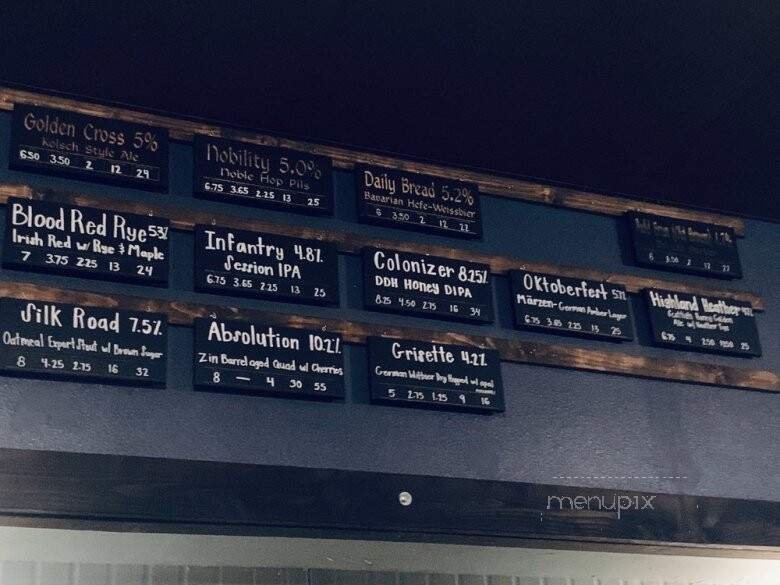 Golden Cross 5%
Kolsch Style Ale
6.50 3.50 2 12 24
Nobility 5.0%
Noble Hop Pils
6.75 3.65 2.25 13 25
Daily Bread 5.2%
Bavarian Hefe-Weissbier
6 3.50 2 12 22
6 3.50 2 12 22
Blood Red Rye 5.3%
Irish Red w/ Rye & Maple
7 3.75 2.25 13 24
Infantry 4.8%
Session IPA
6.75 3.65 2.25 13 25
Colonizer 8.25%
DDH Honey DIPA
8.25 4.50 2.75 16 34
Oktoberfest
Märzen-German Amber Lager
6.75 3.65 2.25 13 25
Highland Heather
Scottish Honey Golden
Ale w/ Heather Tips
6.75 4 2.50 25
Silk Road 7.5%
Oatmeal Export Stout w/ Brown Sugar
8 4.25 2.75 16 32
Absolution 10.2%
Zin Barrel aged Quad w/ Cherries
8 — 4 30 55
Grisette 4.2%
German Wittbier Dry Hopped w/ opal
5 2.75 1.25 9 16
menupix